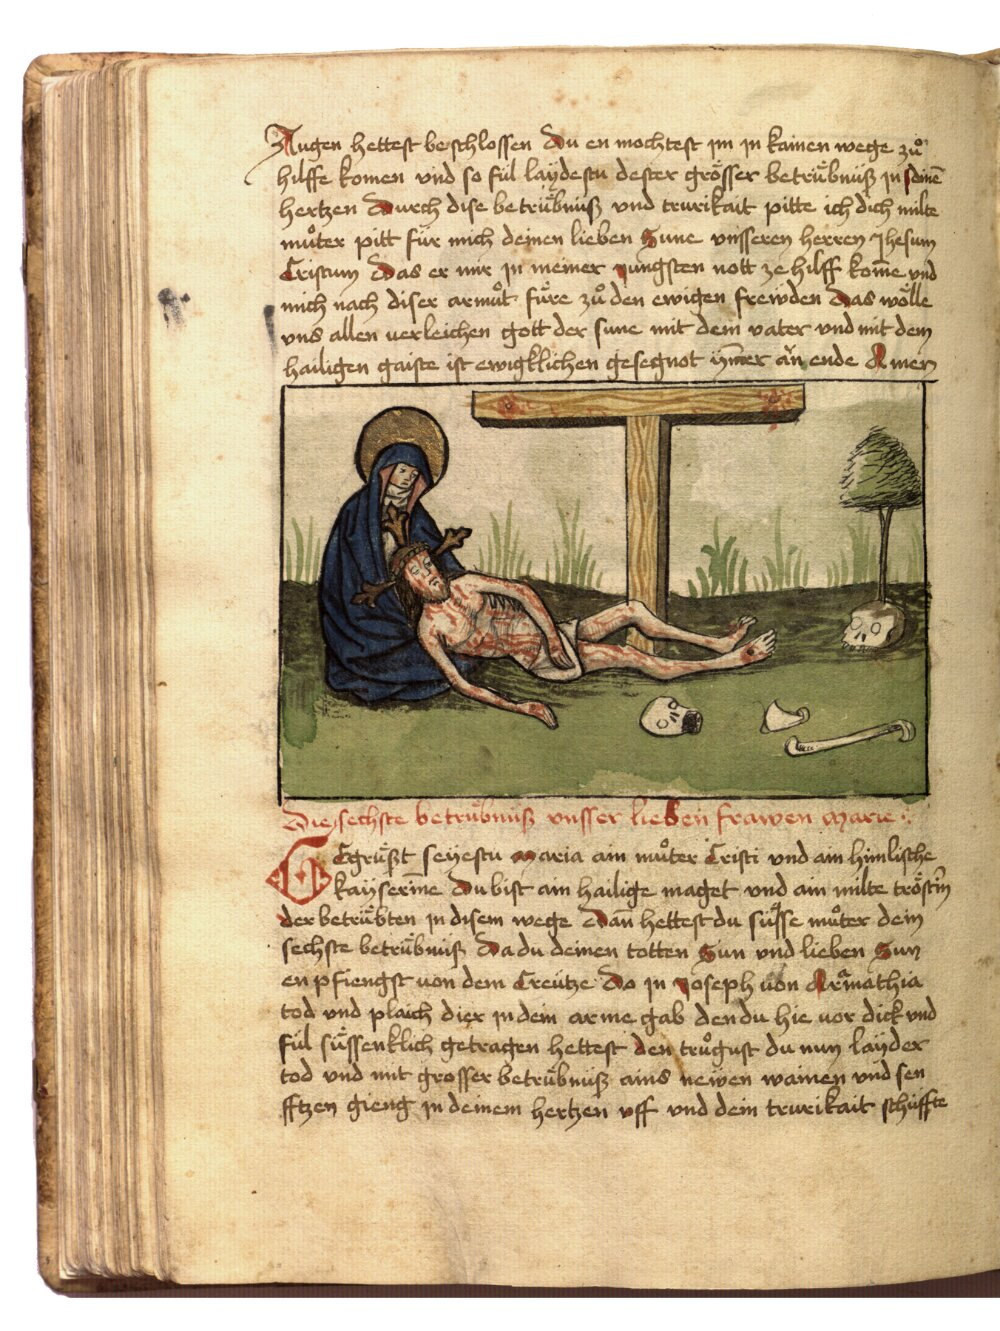 Augen hettest beschlossen Du en mochtest im in kainen wege zů
hilffe komen vnd so fúl laÿdestu dester grösser betrübnüß in deinē
hertzen Durch dise betrübnüß vnd trurikait pitte ich dich milte
můter pitt für mich deinen lieben Sune vnsseren herren Jhesum
Cristum Das er mir in meiner jungsten nott ze hilff kom̄e vnd
mich nach diser armůt füre zů den ewigen freẅden Das wölle
vns allen verleichen gott der sune mit dem vater vnd mit dem
hailigen gaiste ist ewigklichen gesegnot ym̄er an ende Amen
Die sechste betrübnüß vnsser lieben frawen Marie
Gegrüßt seÿestu Maria ain můter Cristi vnd ain himlische
kaÿserin̄e Du bist ain hailige maget vnd ain milte tröstin
der betrübten in disem wege Dan̄ hettest du süsse můter dein
sechste betrübnüß Da du deinen totten Sun vnd lieben Sun
enpfiengst von dem Creütze Do in Joseph von Aromathia
tod vnd plaich dier in dein arme gab den du hie vor dick vnd
fül süssenklich getragen hettest den trůgust du nun laÿder
tod vnd mit grosser betrübnüß ains neẅen wainen vnd sen
fftzen gieng in deinem hertzen vff vnd dein trurikait schüffte